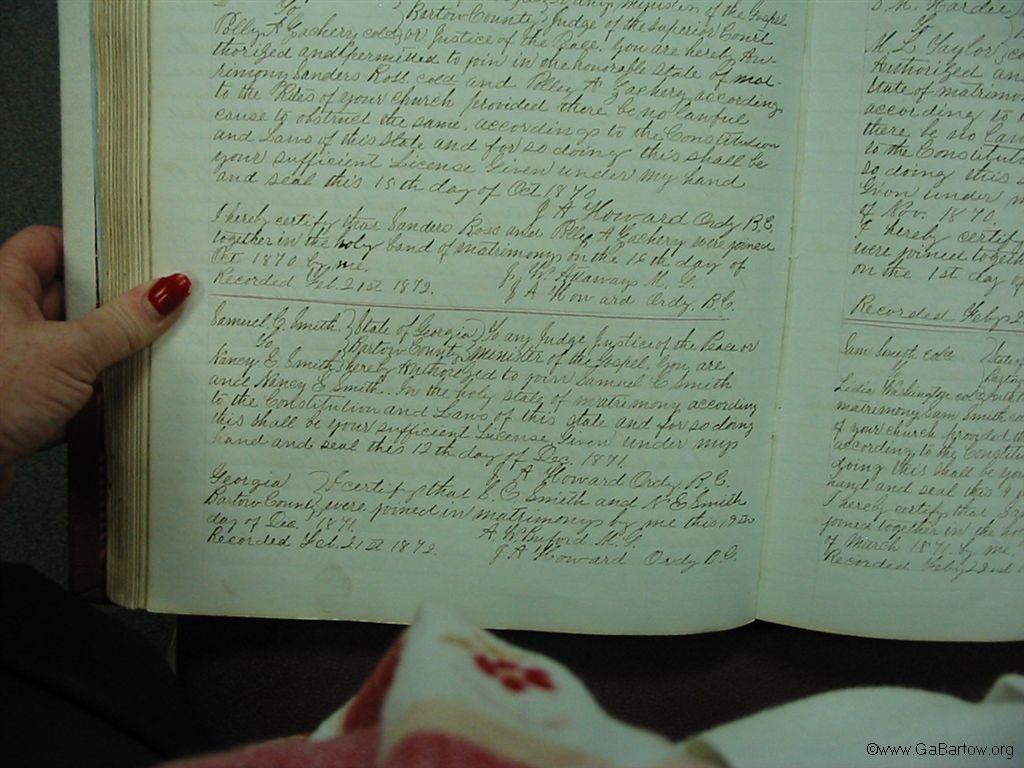 To } Bartow County } Judge of the Superior Court
Polly A Zachery cold } or Justice of the Peace. You are hereby Au-
thorized and permitted to join in the honorable state of mat-
rimony Sanders Ross cold and Polly A Zachery according
to the Rites of your church provided there be no lawful
cause to obstruct the same, according to the Constitution
and Laws of this State and for so doing this shall be
your sufficient License Given under my hand
and seal this 15th day of Oct 1870.
J A Howard Ordy B.C.
I hereby certify that Sanders Ross and Polly A Zachery were joined
together in the holy band of matrimony on the 16th day of
Oct 1870 by me. J. W. Attaway M. G.
Recorded Feb. 21st 1872. J A Howard Ordy. B.C.
Samuel C. Smith } State of Georgia } To any Judge Justice of the Peace or
To } Bartow County } Minister of the Gospel. You are
Nancy E. Smith } hereby Authorized to join Samuel C Smith
and Nancy E Smith. In the holy state of matrimony according
to the Constitution and Laws of this state and for so doing
this shall be your sufficient License Given under my
hand and seal this 12th day of Dec. 1871.
J A Howard Ordy B.C.
Georgia } I certify that S. C Smith and N E Smith
Bartow County } were joined in matrimony by me this
day of Dec. 1871. A. W. Buford M. G.
Recorded Feb. 21st 1872. J A Howard Ordy B.C.
To
M. L. Taylor
Authorized an
State of matrimo
according to
there be no law
to the Constitut
so doing this s
Given under m
of Nov. 1870.
I hereby certif
were joined togeth
on the 1st day of
Recorded Feby 2
Sam Smith cold } State
To
Lidia Washington
matrimony Sam Smith co
of your church provided th
according to the Constitu
doing this shall be you
hand and seal this
I hereby certify that Sa
joined together in the ho
of March 1871 by me
Recorded Feby 22nd
©www.GaBartow.org